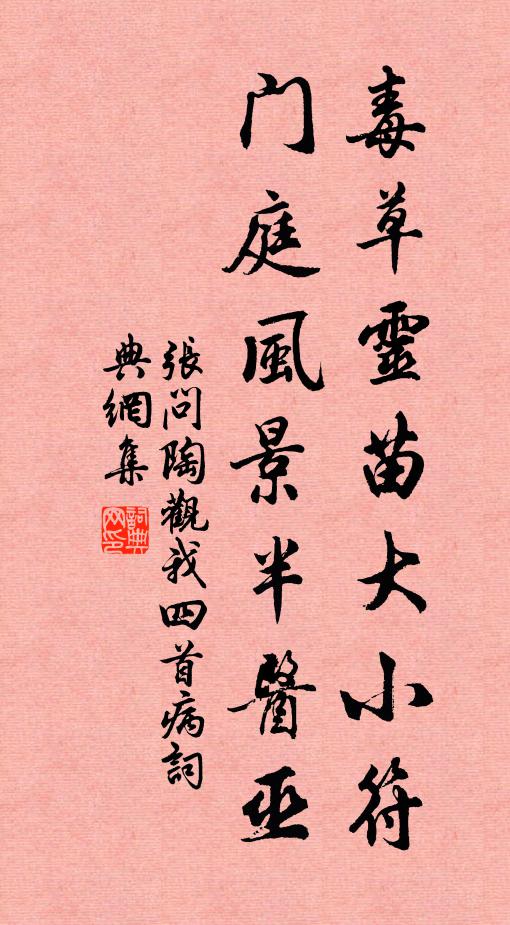 毒草靈苗大小符
門庭風景半醫巫
張問陶觀我四首病詞
典網集
詞典網印